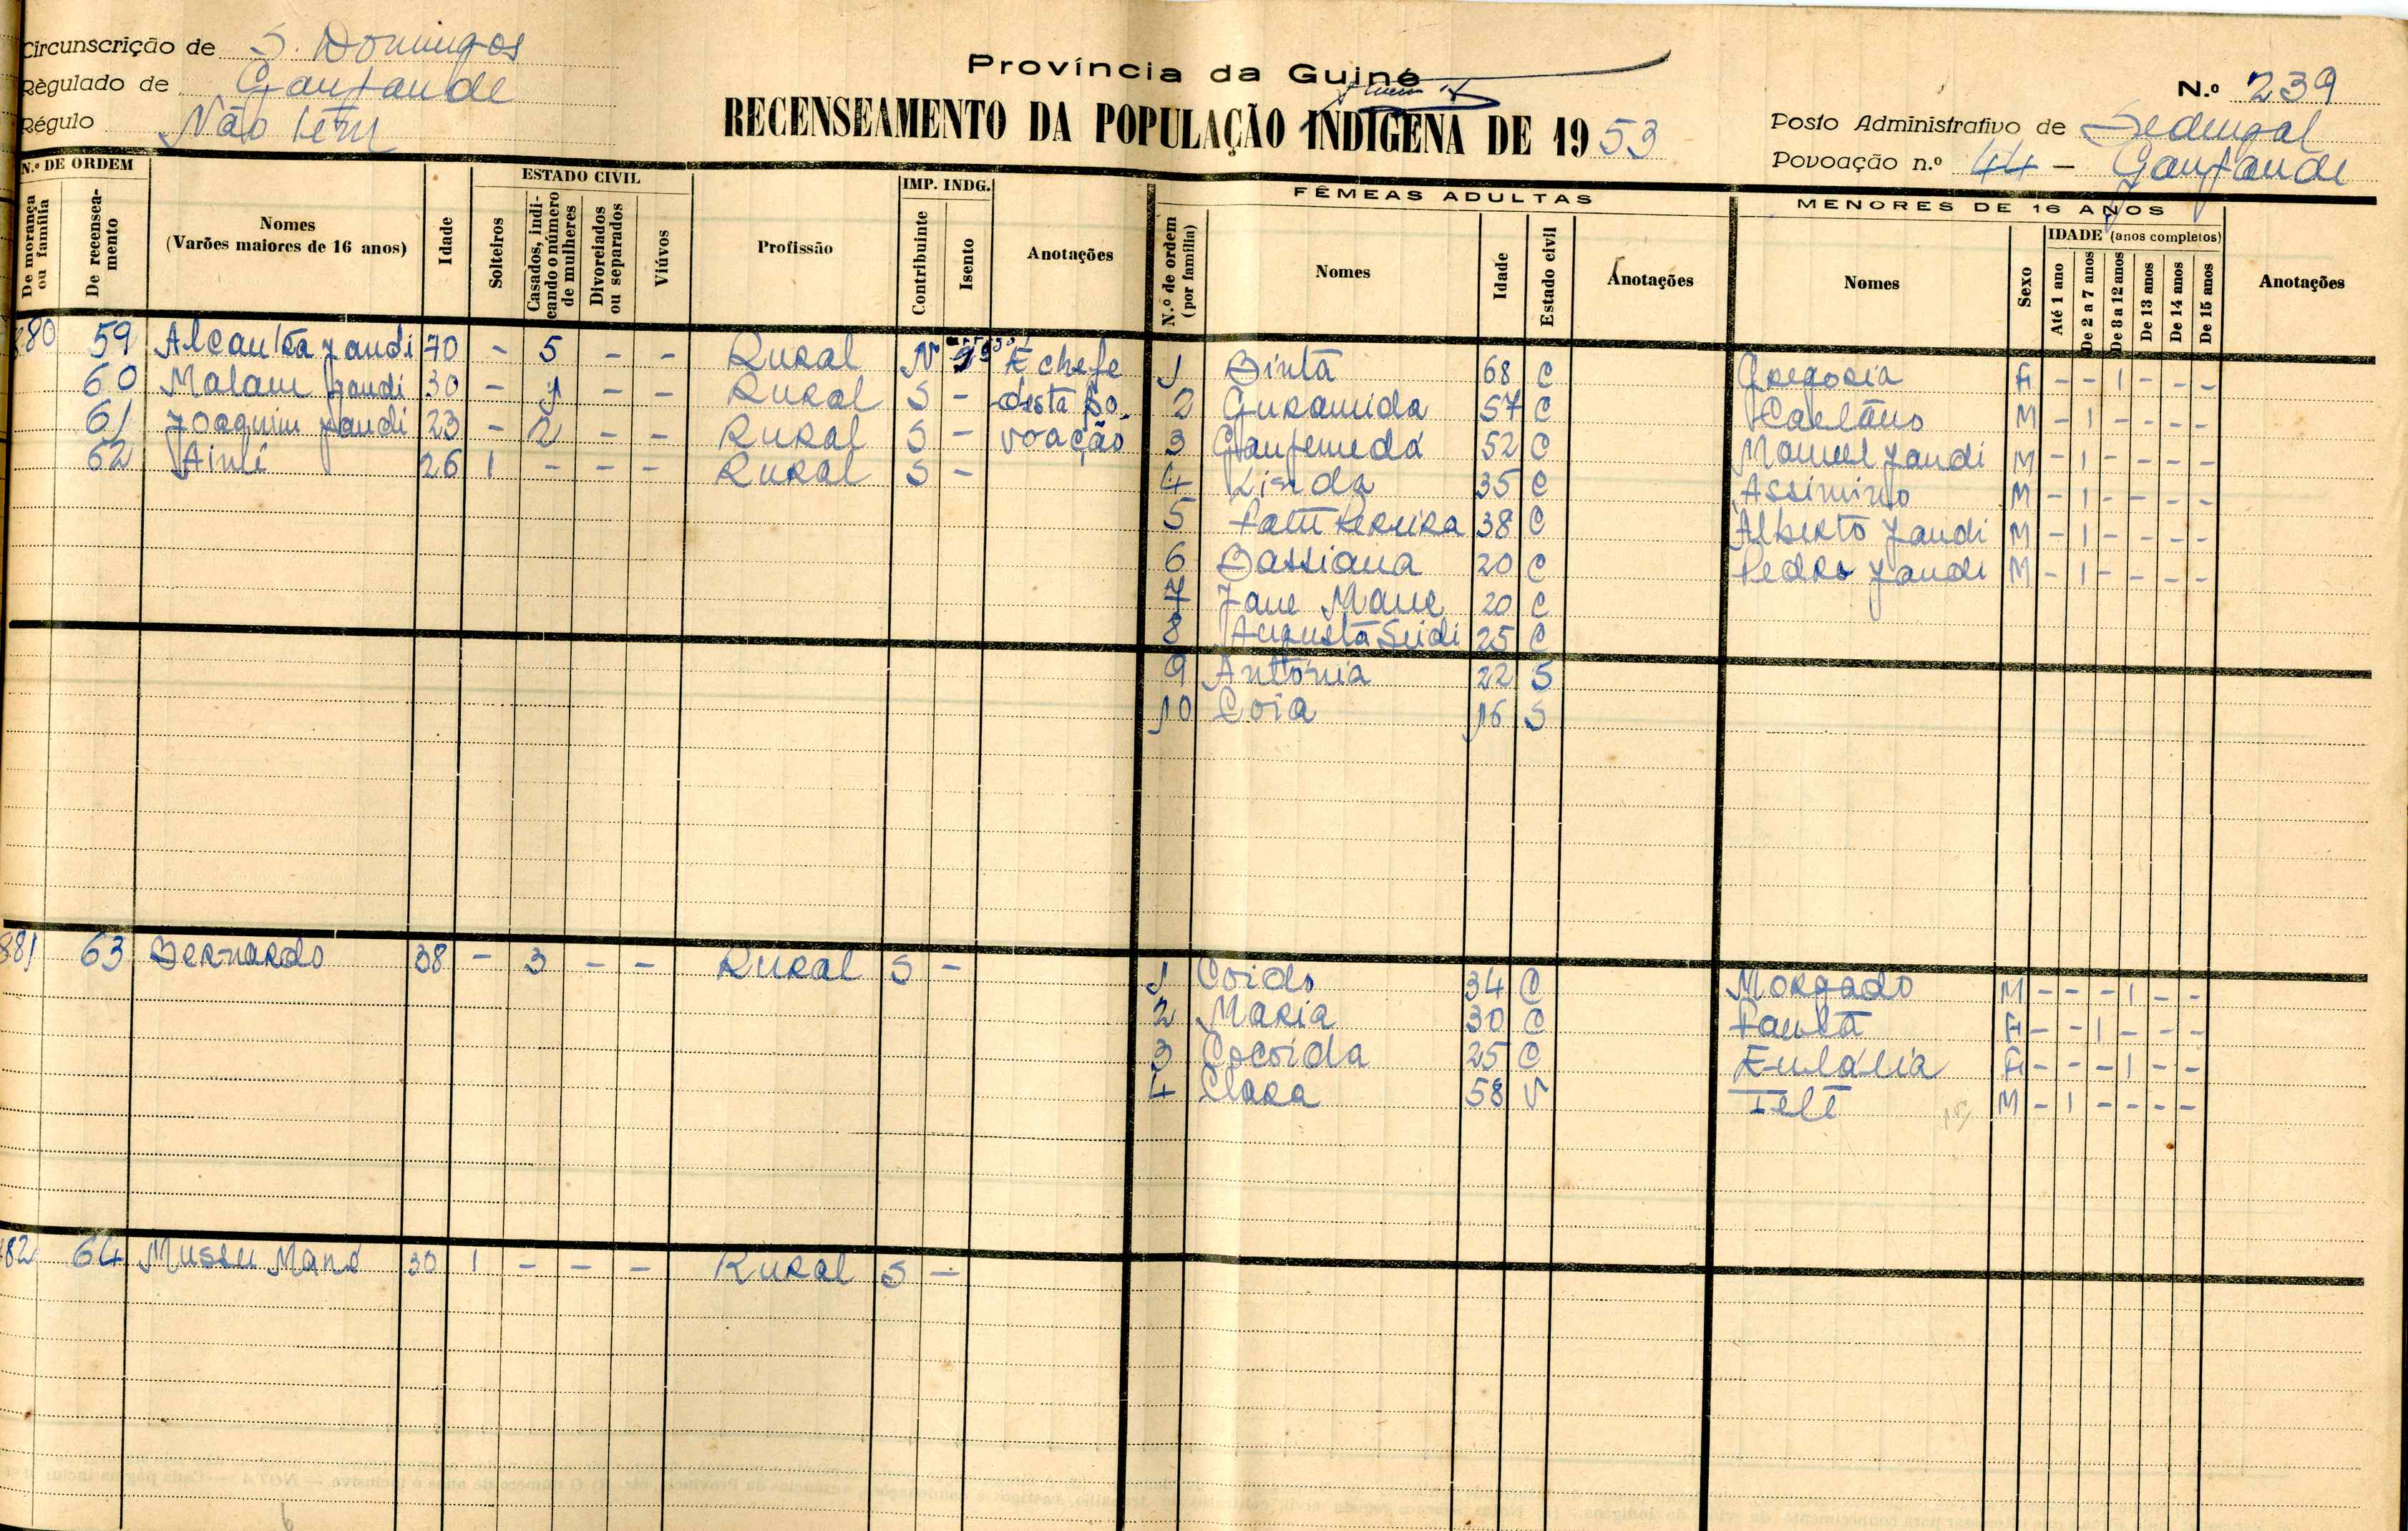 Circunscrição de S. Domingos
Règulado de Ganfande
Régulo Não tem
Província da Guiné
RECENSEAMENTO DA POPULAÇÃO INDIGENA DE 1953
N.º 239
Posto Administrativo de Sedengal
Povoação n.º 44 - Ganfande
N.º DE ORDEM
De morança ou família
De recenseamento
Nomes
(Varões maiores de 16 anos)
Idade
ESTADO CIVIL
Solteiros
Casados, indicando o número de mulheres
Divorciados ou separados
Viúvos
Profissão
IMP. INDG.
Contribuinte
Isento
Anotações
FÊMEAS ADULTAS
N.º de ordem (por família)
Nomes
Idade
Estado civil
Anotações
MENORES DE 16 ANOS
Nomes
Sexo
IDADE (anos completos)
Até 1 ano
De 2 a 7 anos
De 8 a 12 anos
De 13 anos
De 14 anos
De 15 anos
Anotações
880 59 Alcantra Jandi 70 - 5 - - Rural N É chefe
60 Malam Jandi 30 - 1 - - Rural S - desta po-
61 Joaquim Jandi 23 - 2 - - Rural S - voação
62 26 1 - - - Rural S -
1 Binta 68 C
2 Guramida 57 C
3 52 C
4 Linda 35 C
5 Pereira 38 C
6 Bassiana 20 C
7 Jane Mane 20 C
8 Augusta Seidi 25 C
9 Antónia 22 S
10 Coia 16 S
Gregoria F - - 1 - - -
Caetano M - 1 - - - -
Manuel Jandi M - 1 - - - -
Assimino M - 1 - - - -
Alberto Jandi M - 1 - - - -
Pedro Jandi M - 1 - - - -
881 63 Bernardo 38 - 3 - - Rural S -
1 Coido 34 C
2 Maria 30 C
3 Cocoida 25 C
4 Clara 58 V
Morgado M - - - 1 - -
Paulta F - - 1 - - -
Eulália F - - - 1 - -
M - 1 - - - -
882 64 Mussu Mané 30 1 - - - Rural S -